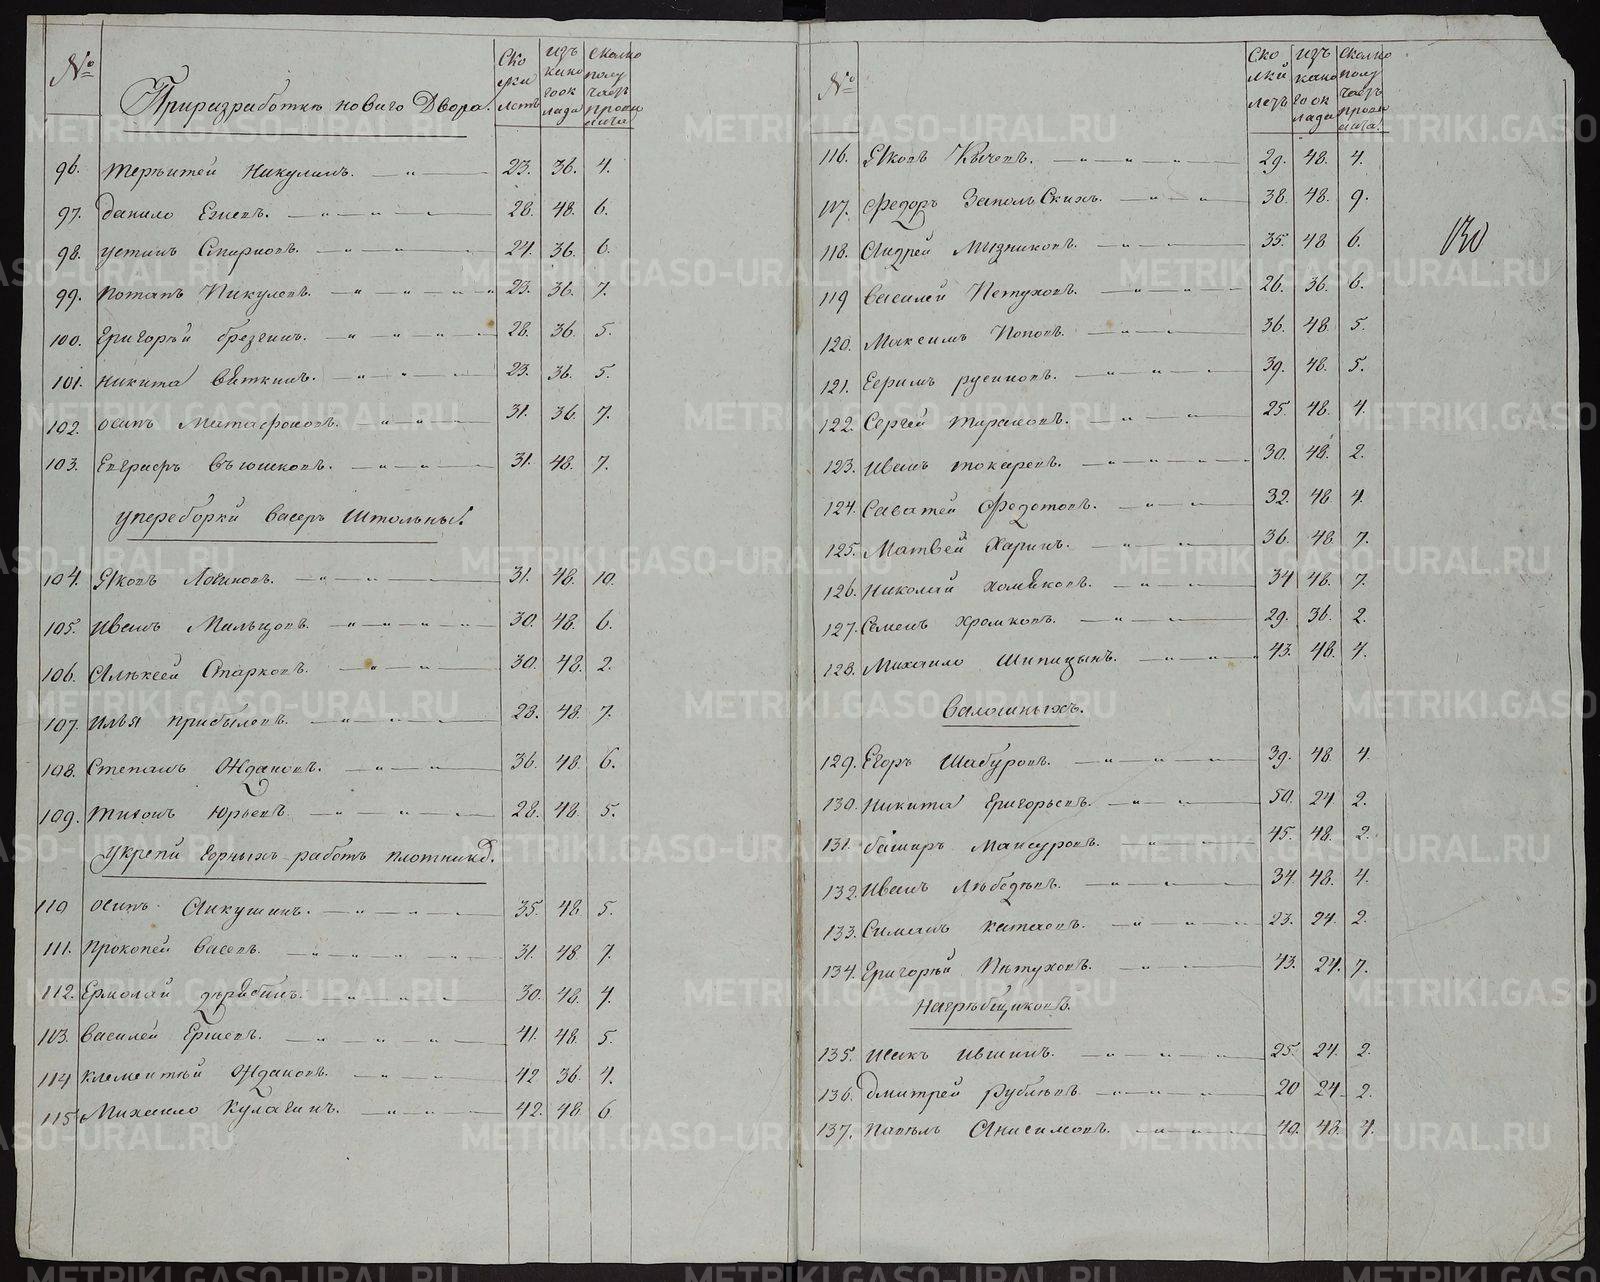 №
Ско лки летъ
изъ како гоок лада
сколко получаетъ провианта
Приразработкѣ новаго Двора.
96. терѣнтей Никулинъ. 23. 36. 4.
97. данило Ежевъ. 28. 48. 6.
98. устинъ Спировъ. 24. 36. 6.
99. Потапъ Никулевъ. 23. 36. 7.
100. Григорѣй брезгинъ. 28. 36. 5.
101. никита вяткинъ. 23. 36. 5.
102. осипъ Митафоновъ. 31. 36. 7.
103. Евграфъ въюшковъ. 31. 48. 7.
упереборки васеръ Штольны.
104. Яковъ Логиновъ. 31. 48. 10.
105. иванъ Мальцовъ. 30. 48. 6.
106. Алѣксей Старковъ. 30. 48. 2.
107. илья прибылевъ. 28. 48. 7.
108. Степанъ Ждановъ. 36. 48. 6.
109. тихонъ Юрьевъ. 28. 48. 5.
укрепи Горныхъ работъ плотники.
110 осипъ Анкушинъ. 35. 48. 5.
111. Прокопей васевъ. 31. 48. 7.
112. Ермолай дерябинъ. 30. 48. 4.
113. василей Ершевъ. 41. 48. 5.
114 Клементѣй Ждановъ. 42 36. 4.
115 Михайло Кулагинъ. 42. 48. 6.
№
Ско лкй летъ
изъ како гоок лада
сколко получаетъ провианта.
116. Яковъ Кычевъ. 29. 48. 4.
117. Федоръ ЗапольСкихъ. 38. 48. 9.
118. Андрей Мызниковъ. 35. 48 6.
130
119 василей Петуховъ. 26. 36. 6.
120. Максимъ Поповъ. 36. 48. 5.
121. Ефримъ русиновъ. 39. 48. 5.
122. Сергей тарановъ. 25. 48. 4.
123. иванъ токаревъ. 30. 48. 2.
124. Саватей Федотовъ. 32. 48. 4.
125. Матвей Харинъ. 36. 48. 7.
126. николай хомяковъ. 34 48. 7.
127. Семенъ хромковъ. 29. 36. 2.
128. Михайло Шипицынъ. 43. 48. 4.
валошныхъ.
129. Егоръ Шабуровъ. 39. 48. 4.
130. никита Григорьевъ. 50. 24 2.
131. баширъ Мансуровъ. 45. 48. 2.
132. иванъ Лѣбедевъ. 34 48. 4.
133. Симанъ катаевъ. 23. 24. 2.
134. Григорѣй Пѣтуховъ. 43. 24. 7.
нагрѣбщиковъ.
135. исакъ ившинъ. 25. 24. 2.
136. дмитрей рублевъ. 20 24. 2.
137. Павелъ Анисимовъ. 49. 48. 4.
METRIKI.GASO-URAL.RU